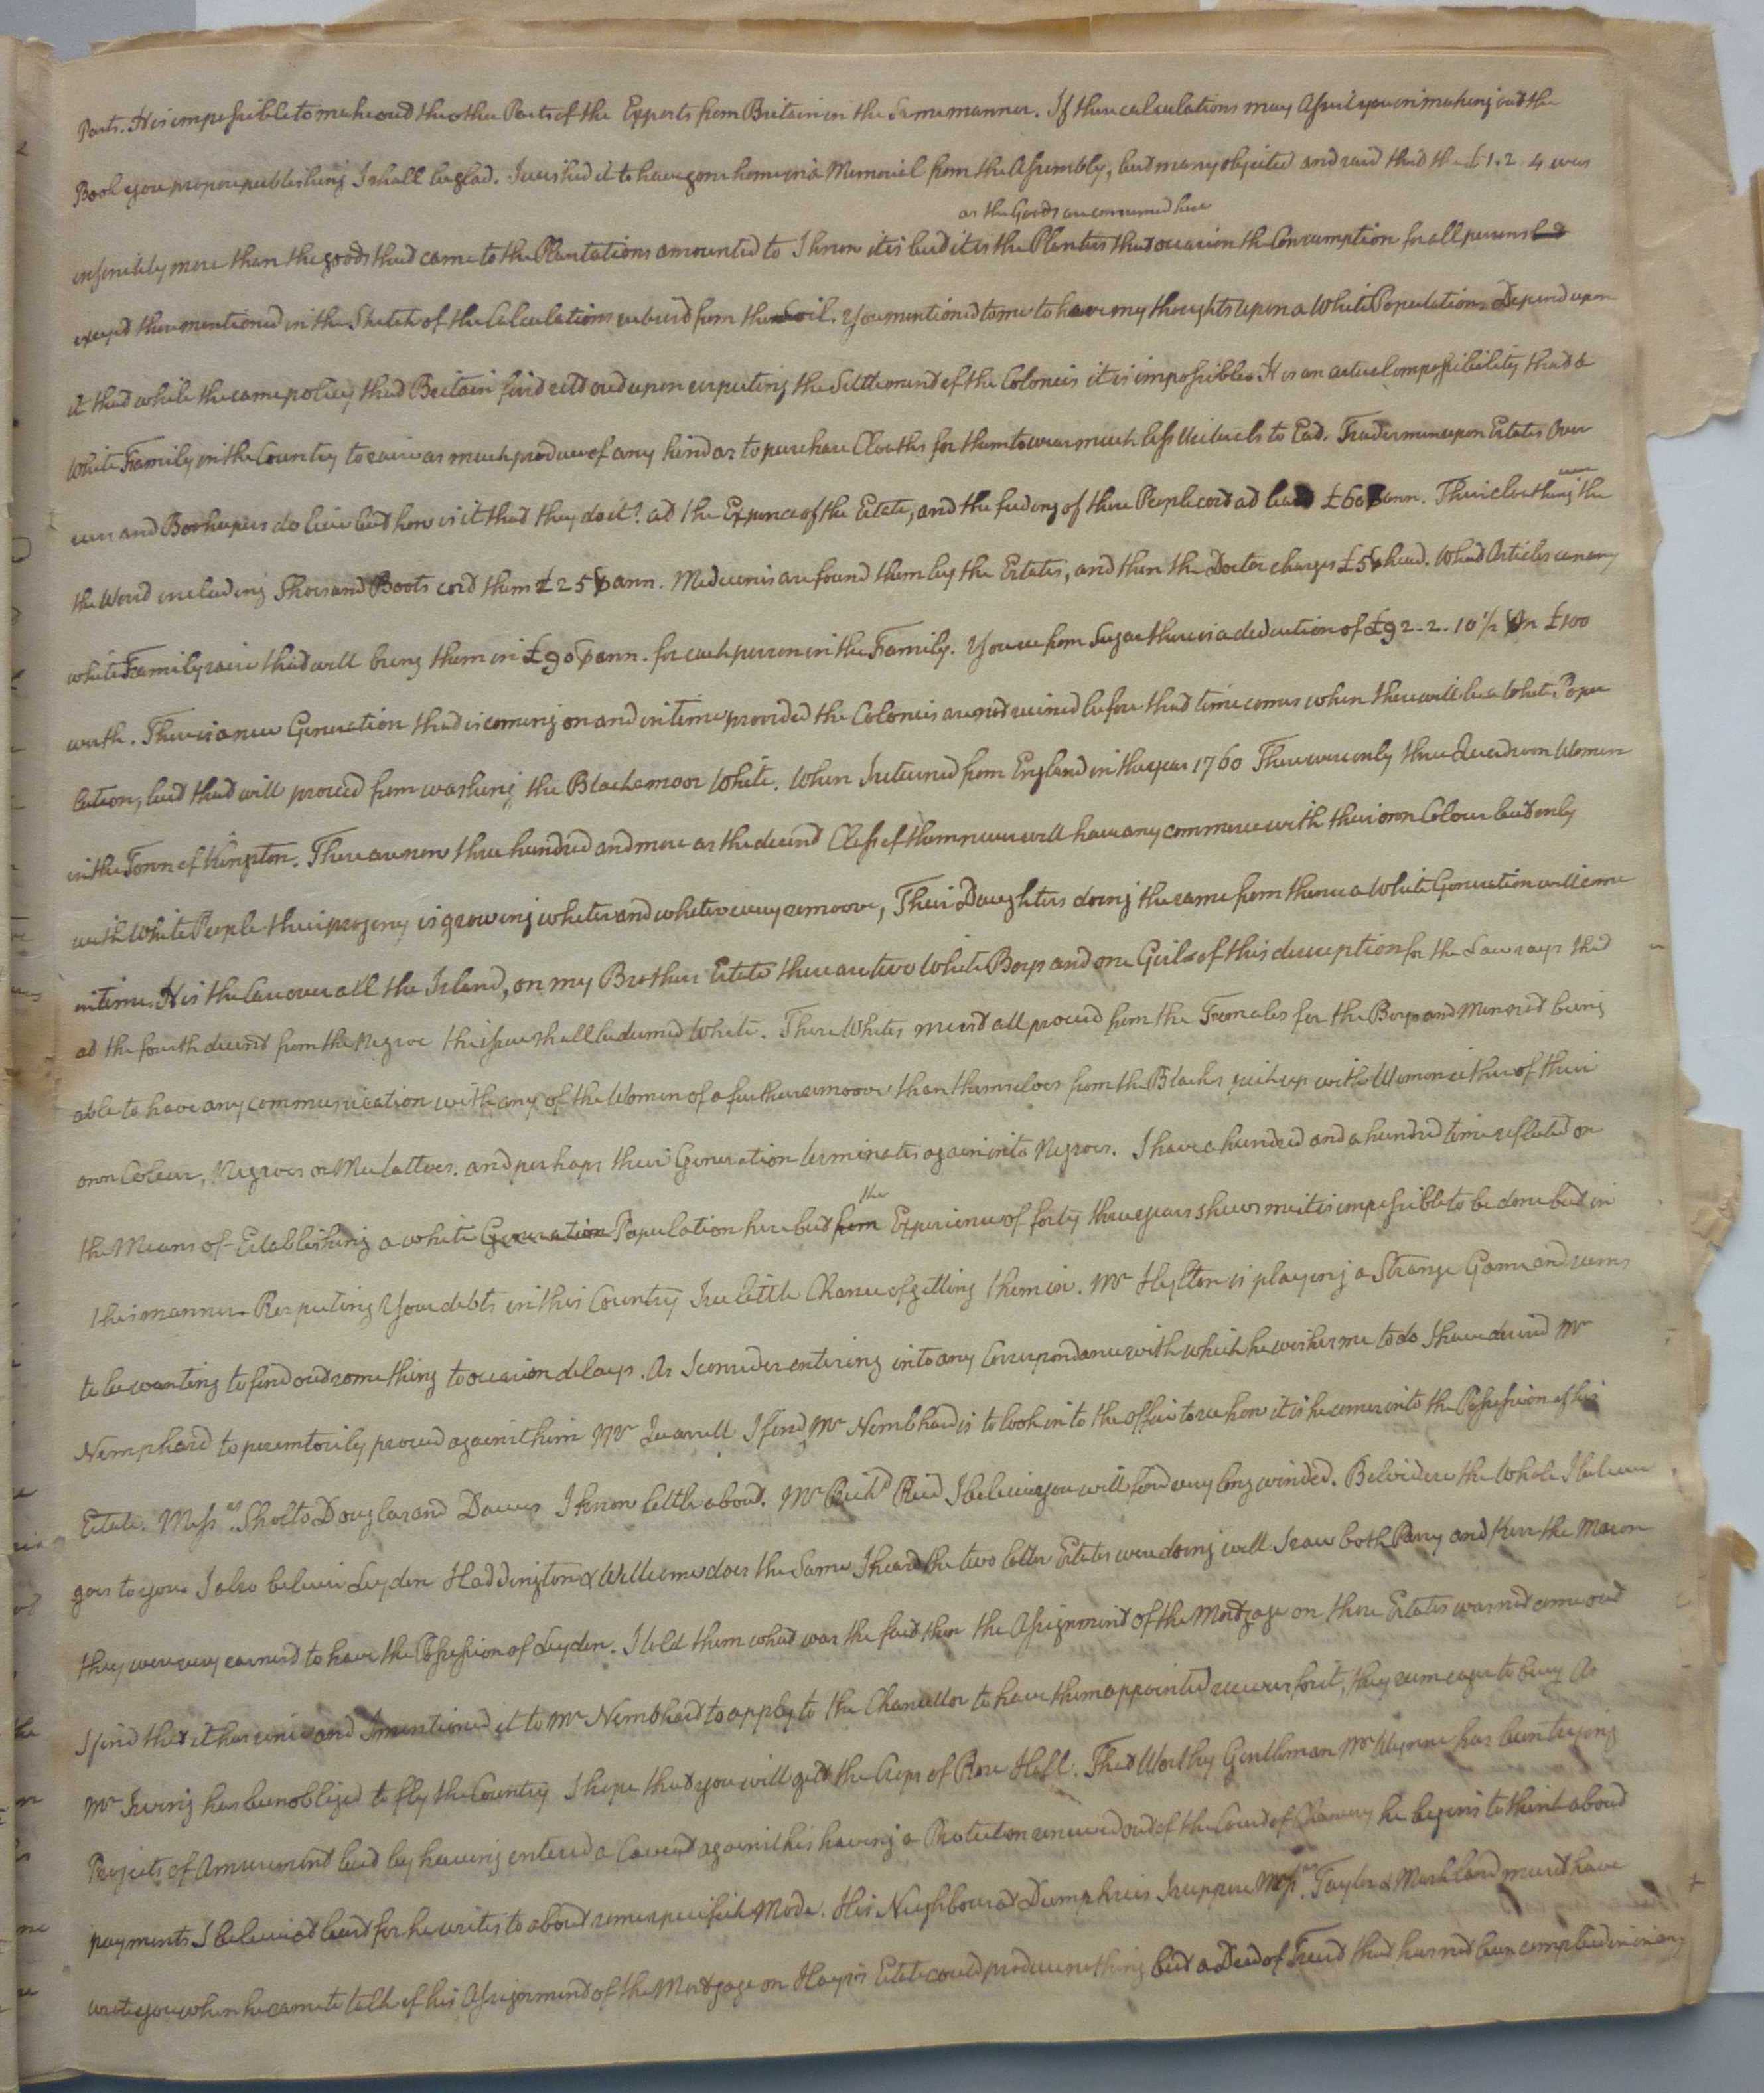 Parts. It is impossible to make out the other Parts of the Exports from Britain in the Same manner. If these calculations may assist you in making out the
Book you propose publishing I shall be glad. I wished it to have gone home in a Memorial from the Assembly, but many objected and said that the £1.2.4 was
as the Goods are consumed here
infinitely more than the goods that came to the Plantations amounted to I know it is but it is the Planters that occasion the Consumption for all persons
except those mentioned in the Sketch of the Calculations subsist from the Soil. You mentioned to me to have my thoughts upon a White Population. Depend upon
it that while the same policy that Britain first sett out upon respecting the Settlement of the Colonies it is impossible. It is an actual impossibility that a
White Family in the Country to raise as much produce of any kind as to purchase Cloaths for them to wear much less Victuals to Eat. Tradesmen upon Estates Over
seers and Bookeepers do live but how is it that they do it? at the Expence of the Estate, and the feeding of these People cost at least £60 ℘ ann. Their cloathing the
the Worst including Shoes and Boots cost them £25 ℘ ann. Medecines are found them by the Estates, and then the Doctor charges £5 ℘ head. What Articles can any
white Family raise that will bring them in £90 ℘ ann. for each person in the Family. You see from Sugar there is a deduction of £92-2-10½ on £100
worth. There is a new Generation that is coming on and in time provided the Colonies are not ruined before that time comes when there will be a White Popu
lation, but that will proceed from washing the Blackamoor White. When I returned from England in the year 1760 There were only three Quadroon Women
in the Town of Kingston. There are now three hundred and more as the decent Class of them never will have any commerce with their own Colour but only
with White People their progeny is growing whiter and whiter every remoove, Their Daughters doing the same from thence a White Generation will come
in time. It is the Case over all the Island, on my Brothers Estate there are two White Boys and one Girl of this description for the Law says that
at the fourth descent from the Negroe the issue shall be deemed White. These Whites must all proceed from the Females for the Boys and Men not being
able to have any communication with any of the Women of a further remoove than themselves from the Blacks pick up with Women either of their
own Colour, Negroes or Mulattoes. and perhaps their Generation terminates again into Negroes. I have a hundred and a hundred times reflected on
the
the Means of Establishing a white Generation Population here but from Experience of forty three years shews me it is impossible to be done but in
this manner. Respecting Your debts in this Country I see little Chance of getting them in. Mr Hylton is playing a Strange Game and seems
to be wanting to find out something to occasion delays. As I consider entering into any Correspondance with which he wishes me to do I have desired Mr
Nemphard to peremtorily proceed against him Mr Quarrell I find Mr Nembhard is to look in to the office to see how it is he comes into the Possession of his
Estate. Messrs Sholto Douglas and Dawes I know little about. Mr Richd Reid I believe you will find very long winded. Belvidere the Whole I believe
goes to you. I also believe Leyden Haddington & Williams does the Same I heard the two latter Estates were doing well I saw both Parry and Kerr the Mason
they were very earnest to have the Possession of Leyden. I told them what was the fact then the Assignment of the Mortgage on those Estates was not come out
I find that it has since and I mentioned it to Mr Nembhard to apply to the Chancellor to have them appointed receivers for it, they seem eager to buy As
Mr Irving has been obliged to fly the Country I hope that you will get the Crops of Rose Hall. That Worthy Gentleman Mr Wynne has been trying
Projects of Amusement but by having entered a Caveat against his having a Protection renewed out of the Court of Chancery he begins to think about
payments I believe at least for he writes to about some specifick Mode. His Neighbour at Dumphries I suppose Messrs Taylor & Markland must have
wrote you when he came to talk of his Assignment of the Mortgage on Hays's Estate could produce nothing but a Deed of Trust that has not been complied in in any